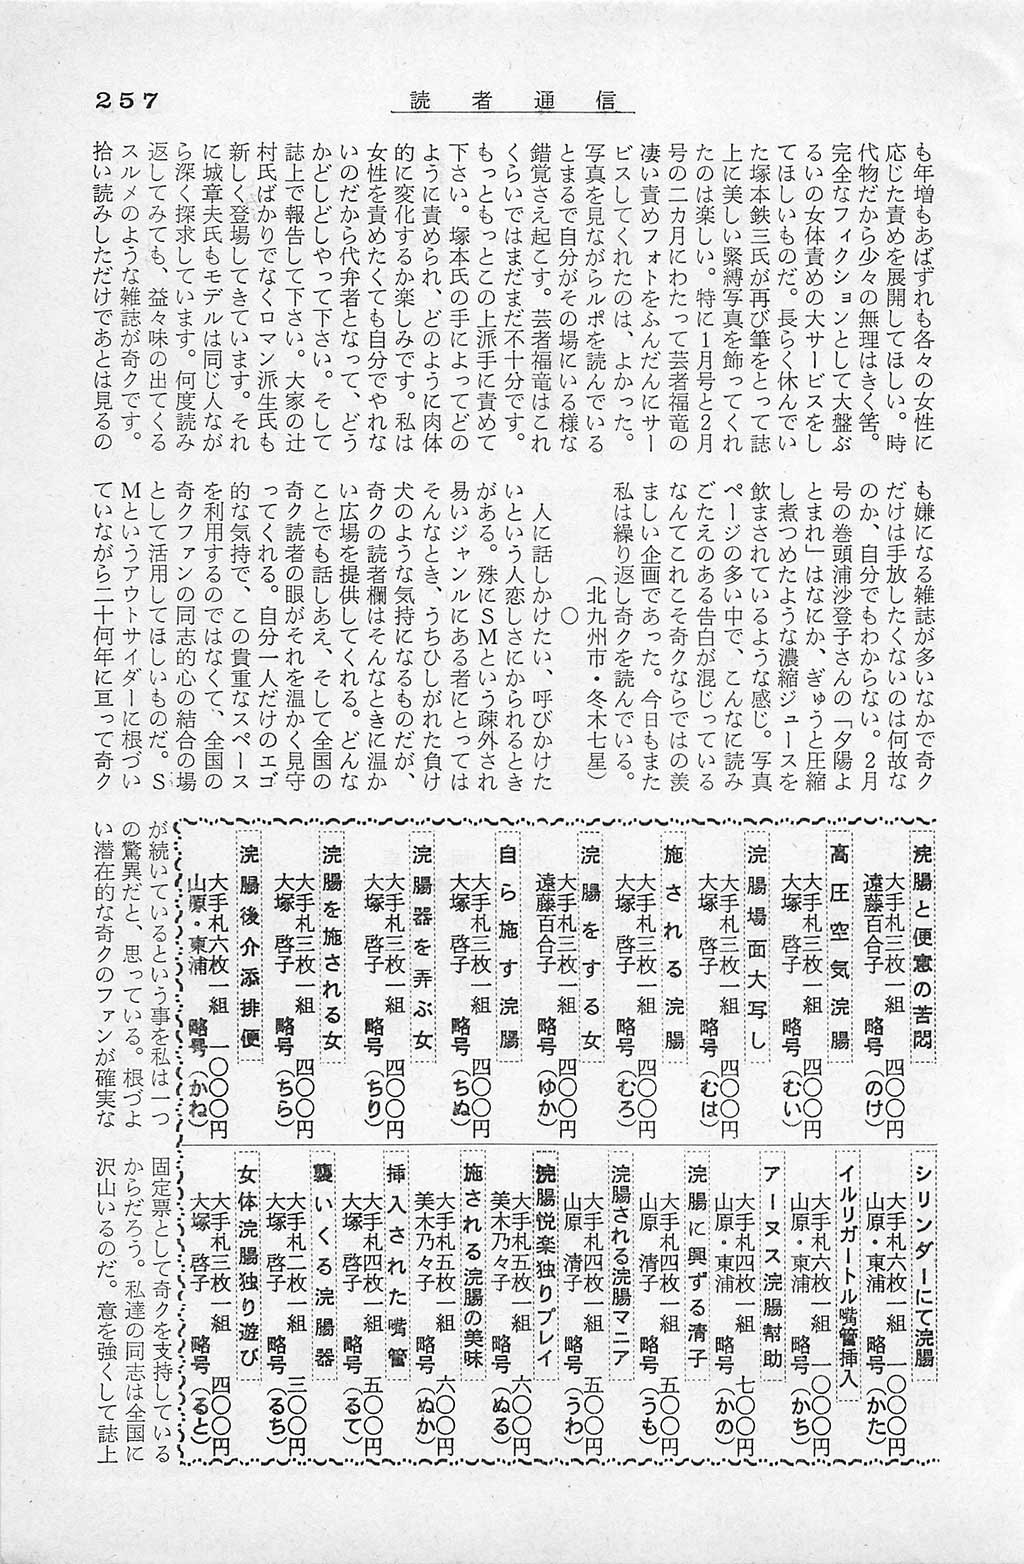 257
読者通信
も年増もあばずれも各々の女性に
応じた責めを展開してほしい。時
代物だから少々の無理はきく筈。
完全なフィクションとして大盤ぶ
るいの女体責めの大サービスをし
てほしいものだ。長らく休んでい
た塚本鉄三氏が再び筆をとって誌
上に美しい緊縛写真を飾ってくれ
たのは楽しい。特に1月号と2月
号の二カ月にわたって芸者福竜の
凄い責めフォトをふんだんにサー
ビスしてくれたのは、よかった。
写真を見ながらルポを読んでいる
とまるで自分がその場にいる様な
錯覚さえ起こす。芸者福竜はこれ
くらいではまだまだ不十分です。
もっともっとこの上派手に責めて
下さい。塚本氏の手によってどの
ように責められ、どのように肉体
的に変化するか楽しみです。私は
女性を責めたくても自分でやれな
いのだから代弁者となって、どう
かどしどしやって下さい。そして
誌上で報告して下さい。大家の辻
村氏ばかりでなくロマン派生氏も
新しく登場してきています。それ
に城章夫氏もモデルは同じ人なが
ら深く探求しています。何度読み
返してみても、益々味の出てくる
スルメのような雑誌が奇クです。
拾い読みしただけであとは見るの
も嫌になる雑誌が多いなかで奇ク
だけは手放したくないのは何故な
のか、自分でもわからない。2月
号の巻頭浦沙登子さんの「夕陽よ
とまれ」はなにか、ぎゅうと圧縮
し煮つめたような濃縮ジュースを
飲まされているような感じ。写真
ページの多い中で、こんなに読み
ごたえのある告白が混じっている
なんてこれこそ奇クならではの羨
ましい企画であった。今日もまた
私は繰り返し奇クを読んでいる。
（北九州市・冬木七星）
○
人に話しかけたい、呼びかけた
いという人恋しさにかられるとき
がある。殊にＳＭという疎外され
易いジャンルにある者にとっては
そんなとき、うちひしがれた負け
犬のような気持になるものだが、
奇クの読者欄はそんなときに温か
い広場を提供してくれる。どんな
ことでも話しあえ、そして全国の
奇ク読者の眼がそれを温かく見守
ってくれる。自分一人だけのエゴ
的な気持で、この貴重なスペース
を利用するのではなくて、全国の
奇クファンの同志的心の結合の場
として活用してほしいものだ。Ｓ
Ｍというアウトサイダーに根づい
ていながら二十何年に亘って奇ク
が続いているという事を私は一つ
の驚異だと、思っている。根づよ
い潜在的な奇クのファンが確実な
固定票として奇クを支持している
からだろう。私達の同志は全国に
沢山いるのだ。意を強くして誌上
浣腸と便意の苦悶
大手札三枚一組 四〇〇円
遠藤百合子 略号（のけ）
高圧空気浣腸
大手札三枚一組 四〇〇円
大塚 啓子 略号（むい）
浣腸場面大写し
大手札三枚一組 四〇〇円
大塚 啓子 略号（むは）
施される浣腸
大手札三枚一組 四〇〇円
大塚 啓子 略号（むろ）
浣腸をする女
大手札三枚一組 四〇〇円
遠藤百合子 略号（ゆか）
自ら施す浣腸
大手札三枚一組 四〇〇円
大塚 啓子 略号（ちぬ）
浣腸器を弄ぶ女
大手札三枚一組 四〇〇円
大塚 啓子 略号（ちり）
浣腸を施される女
大手札三枚一組 四〇〇円
大塚 啓子 略号（ちら）
浣腸後介添排便
大手札六枚一組 一〇〇〇円
山原・東浦 略号（かね）
シリンダーにて浣腸
大手札六枚一組 一〇〇〇円
山原・東浦 略号（かた）
イルリガートル嘴管挿入
大手札六枚一組 一〇〇〇円
山原・東浦 略号（かち）
アーヌス浣腸幇助
大手札四枚一組 七〇〇円
山原・東浦 略号（かの）
浣腸に興ずる清子
大手札四枚一組 五〇〇円
山原 清子 略号（うも）
浣腸される浣腸マニア
大手札四枚一組 五〇〇円
山原 清子 略号（うわ）
浣腸悦楽独りプレイ
大手札五枚一組 六〇〇円
美木乃々子 略号（ぬる）
施される浣腸の美味
大手札五枚一組 六〇〇円
美木乃々子 略号（ぬか）
挿入された嘴管
大手札四枚一組 五〇〇円
大塚 啓子 略号（るて）
襲いくる浣腸器
大手札二枚一組 三〇〇円
大塚 啓子 略号（るち）
女体浣腸独り遊び
大手札三枚一組 四〇〇円
大塚 啓子 略号（ると）